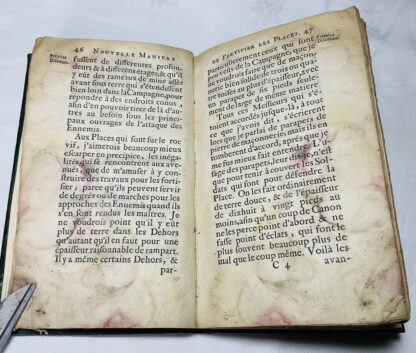 46 NOUVELLE MANIERE
fussent de differentes profon-
deurs & à differens étages; & qu'il
y eût des rameaux de mine assez
avant sous terre qui s'étendissent
bien loin dans la Campagne, pour
répondre à des endroits connus,
afin d'en pouvoir tirer de là d'au-
tres au besoin sous les princi-
paux ouvrages de l'attaque des
Ennemis.
Aux Places qui sont sur le roc
vif, j'aimerois beaucoup mieux
escarper en precipice, les inéga-
litez qui se rencontrent aux ave-
nuës, que de m'amuser à y con-
struire des travaux pour les forti-
fier; parce qu'ils peuvent servir
de degrés ou de marches pour les
approches des Ennemis quand ils
s'en sont rendus les maîtres. Je
ne voudrois point qu'il y eût
plus de terre dans les Dehors
qu'autant qu'il en faut pour une
épaisseur raisonnable de rampart.
Il y a même certains Dehors, &
par-
DE FORTIFIER LES PLACES. 47
particulierement ceux qui sont
peu veus de la Campagne, que je
ne voudrois faire que de maçon-
nerie bien solide de trois ou quatre
toises au plus d'épaisseur, avec
un parapet de six pieds seule-
ment de large de même matiere.
Tous ces Messieurs qui s'é-
toient accordés jusque-là, à tout
ce que j'avois dit, s'écrierent
lors que je parlai de parapets de
pierre de maçonnerie, mais ils en
tomberent d'accord, après que je
leur eus demandé à quoi l'u-
sage des parapets, leur dis-je, n'est
que pour tenir à couvert les Sol-
dats qui sont pour défendre la
Place. On les fait ordinairement
de terre douce, & de l'épaisseur
de dixhuit à vingt pieds au
moins, afin qu'un coup de Canon
ne les perce point d'abord & ne
fasse point d'éclats, qui font le
plus souvent beaucoup plus de
mal que le coup même. Voilà les
C 4 avan-